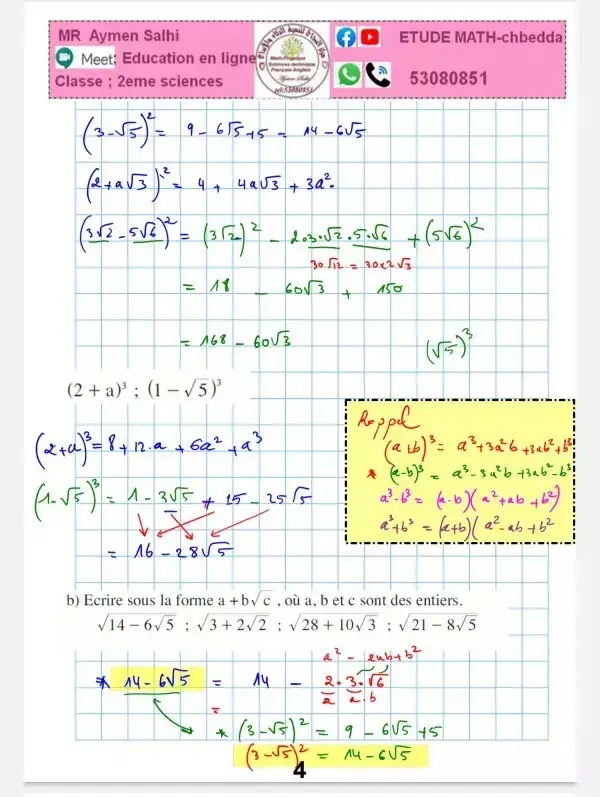 MR Aymen Salhi
Meet: Education en ligne
Classe ; 2eme sciences
Math-Physique
Sciences technique
Français-Anglais
Aymen Salhi
tel:53080851
ETUDE MATH-chbedda
53080851
(3-√5)² = 9 - 6√5 + 5 = 14 - 6√5
(2+a√3)² = 4 + 4a√3 + 3a².
(3√2 - 5√6)² = (3√2)² - 2·3·√2·5·√6 + (5√6)²
30√12 = 30×2√3
= 18 - 60√3 + 150
= 168 - 60√3
(√5)³
(2 + a)³ ; (1 − √5)³
(2+a)³ = 8 + 12·a + 6a² + a³
(1-√5)³ = 1 - 3√5 + 15 - 25√5
= 16 - 28√5
Rappel
(a+b)³ = a³+3a²b+3ab²+b³
* (a-b)³ = a³-3a²b+3ab²-b³
a³-b³ = (a-b)(a²+ab+b²)
a³+b³ = (a+b)(a²-ab+b²
b) Ecrire sous la forme a + b√c , où a, b et c sont des entiers.
√14 − 6√5 ; √3 + 2√2 ; √28 + 10√3 ; √21 − 8√5
a² - 2ab + b²
* 14 - 6√5 = 14 - 2·3·√6
2 a·b
=
* (3-√5)² = 9 - 6√5 + 5
(3-√5)² = 14 - 6√5
4